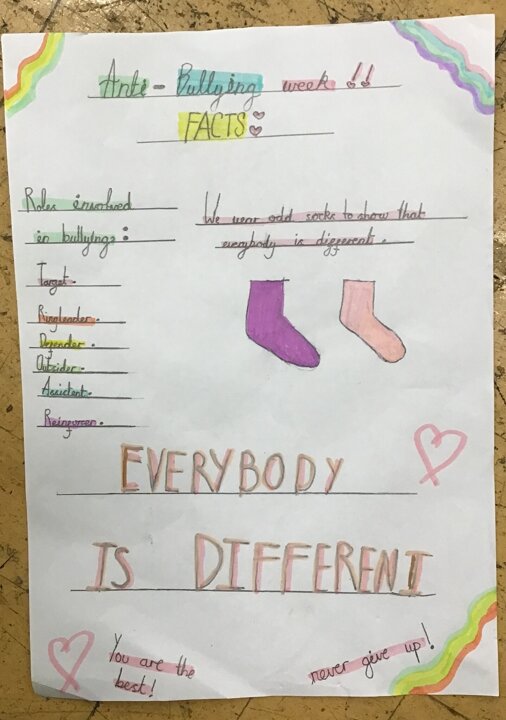 Anti - Bullying week !!
FACTS:
Roles involved
in bullying:
Target.
Ringleader.
Defender.
Outsider.
Assistent.
Reinforcer.
We wear odd socks to show that
everybody is different.
EVERYBODY
IS DIFFERENT
You are the
best!
never give up!